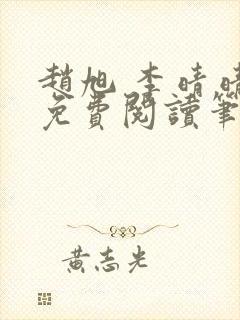 趙旭 李晴晴
免費閱讀筆
黃志光